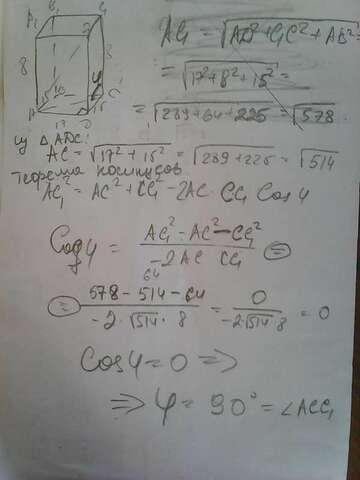 B₁ C₁
A₁
8 8
A D C
17 15
AC₁ = √AD²+CC₁²+AB² =
= √17²+8²+15² =
= √289+64+225 = √578
из △ADC:
AC = √17²+15² = √289+225 = √514
Теорема косинусов
AC₁² = AC² + CC₁² - 2AC · CC₁ Cos φ
Cos φ = (AC₁² - AC² - CC₁²) / (-2 AC CC₁) =
64
= (578 - 514 - 64) / (-2 · √514 · 8) = 0 / (-2√514 · 8) = 0
Cos φ = 0 ⇒
⇒ φ = 90° = ∠ACC₁